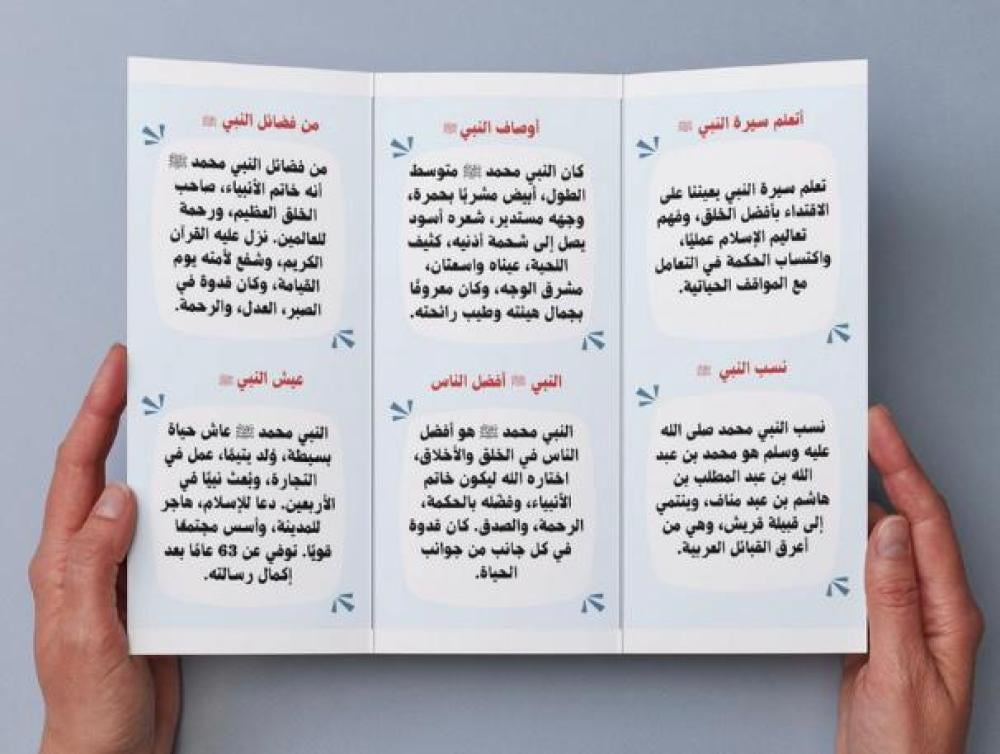 أتعلم سيرة النبي ﷺ
تعلم سيرة النبي يعيننا على
الاقتداء بأفضل الخلق، وفهم
تعاليم الإسلام عمليًا،
واكتساب الحكمة في التعامل
مع المواقف الحياتية.
نسب النبي ﷺ
نسب النبي محمد صلى الله
عليه وسلم هو محمد بن عبد
الله بن عبد المطلب بن
هاشم بن عبد مناف، وينتمي
إلى قبيلة قريش، وهي من
أعرق القبائل العربية.
أوصاف النبي ﷺ
كان النبي محمد ﷺ متوسط
الطول، أبيض مشربًا بحمرة،
وجهه مستدير، شعره أسود
يصل إلى شحمة أذنيه، كثيف
اللحية، عيناه واسعتان،
مشرق الوجه، وكان معروفًا
بجمال هيئته وطيب رائحته.
النبي ﷺ أفضل الناس
النبي محمد ﷺ هو أفضل
الناس في الخلق والأخلاق،
اختاره الله ليكون خاتم
الأنبياء، وفضّله بالحكمة،
الرحمة، والصدق. كان قدوة
في كل جانب من جوانب
الحياة.
من فضائل النبي ﷺ
من فضائل النبي محمد ﷺ
أنه خاتم الأنبياء، صاحب
الخلق العظيم، ورحمة
للعالمين. نزل عليه القرآن
الكريم، وشفع لأمته يوم
القيامة، وكان قدوة في
الصبر، العدل، والرحمة.
عيش النبي ﷺ
النبي محمد ﷺ عاش حياة
بسيطة، وُلد يتيمًا، عمل في
التجارة، وبُعث نبيًا في
الأربعين. دعا للإسلام، هاجر
للمدينة، وأسس مجتمعًا
قويًا. توفي عن 63 عامًا بعد
إكمال رسالته.